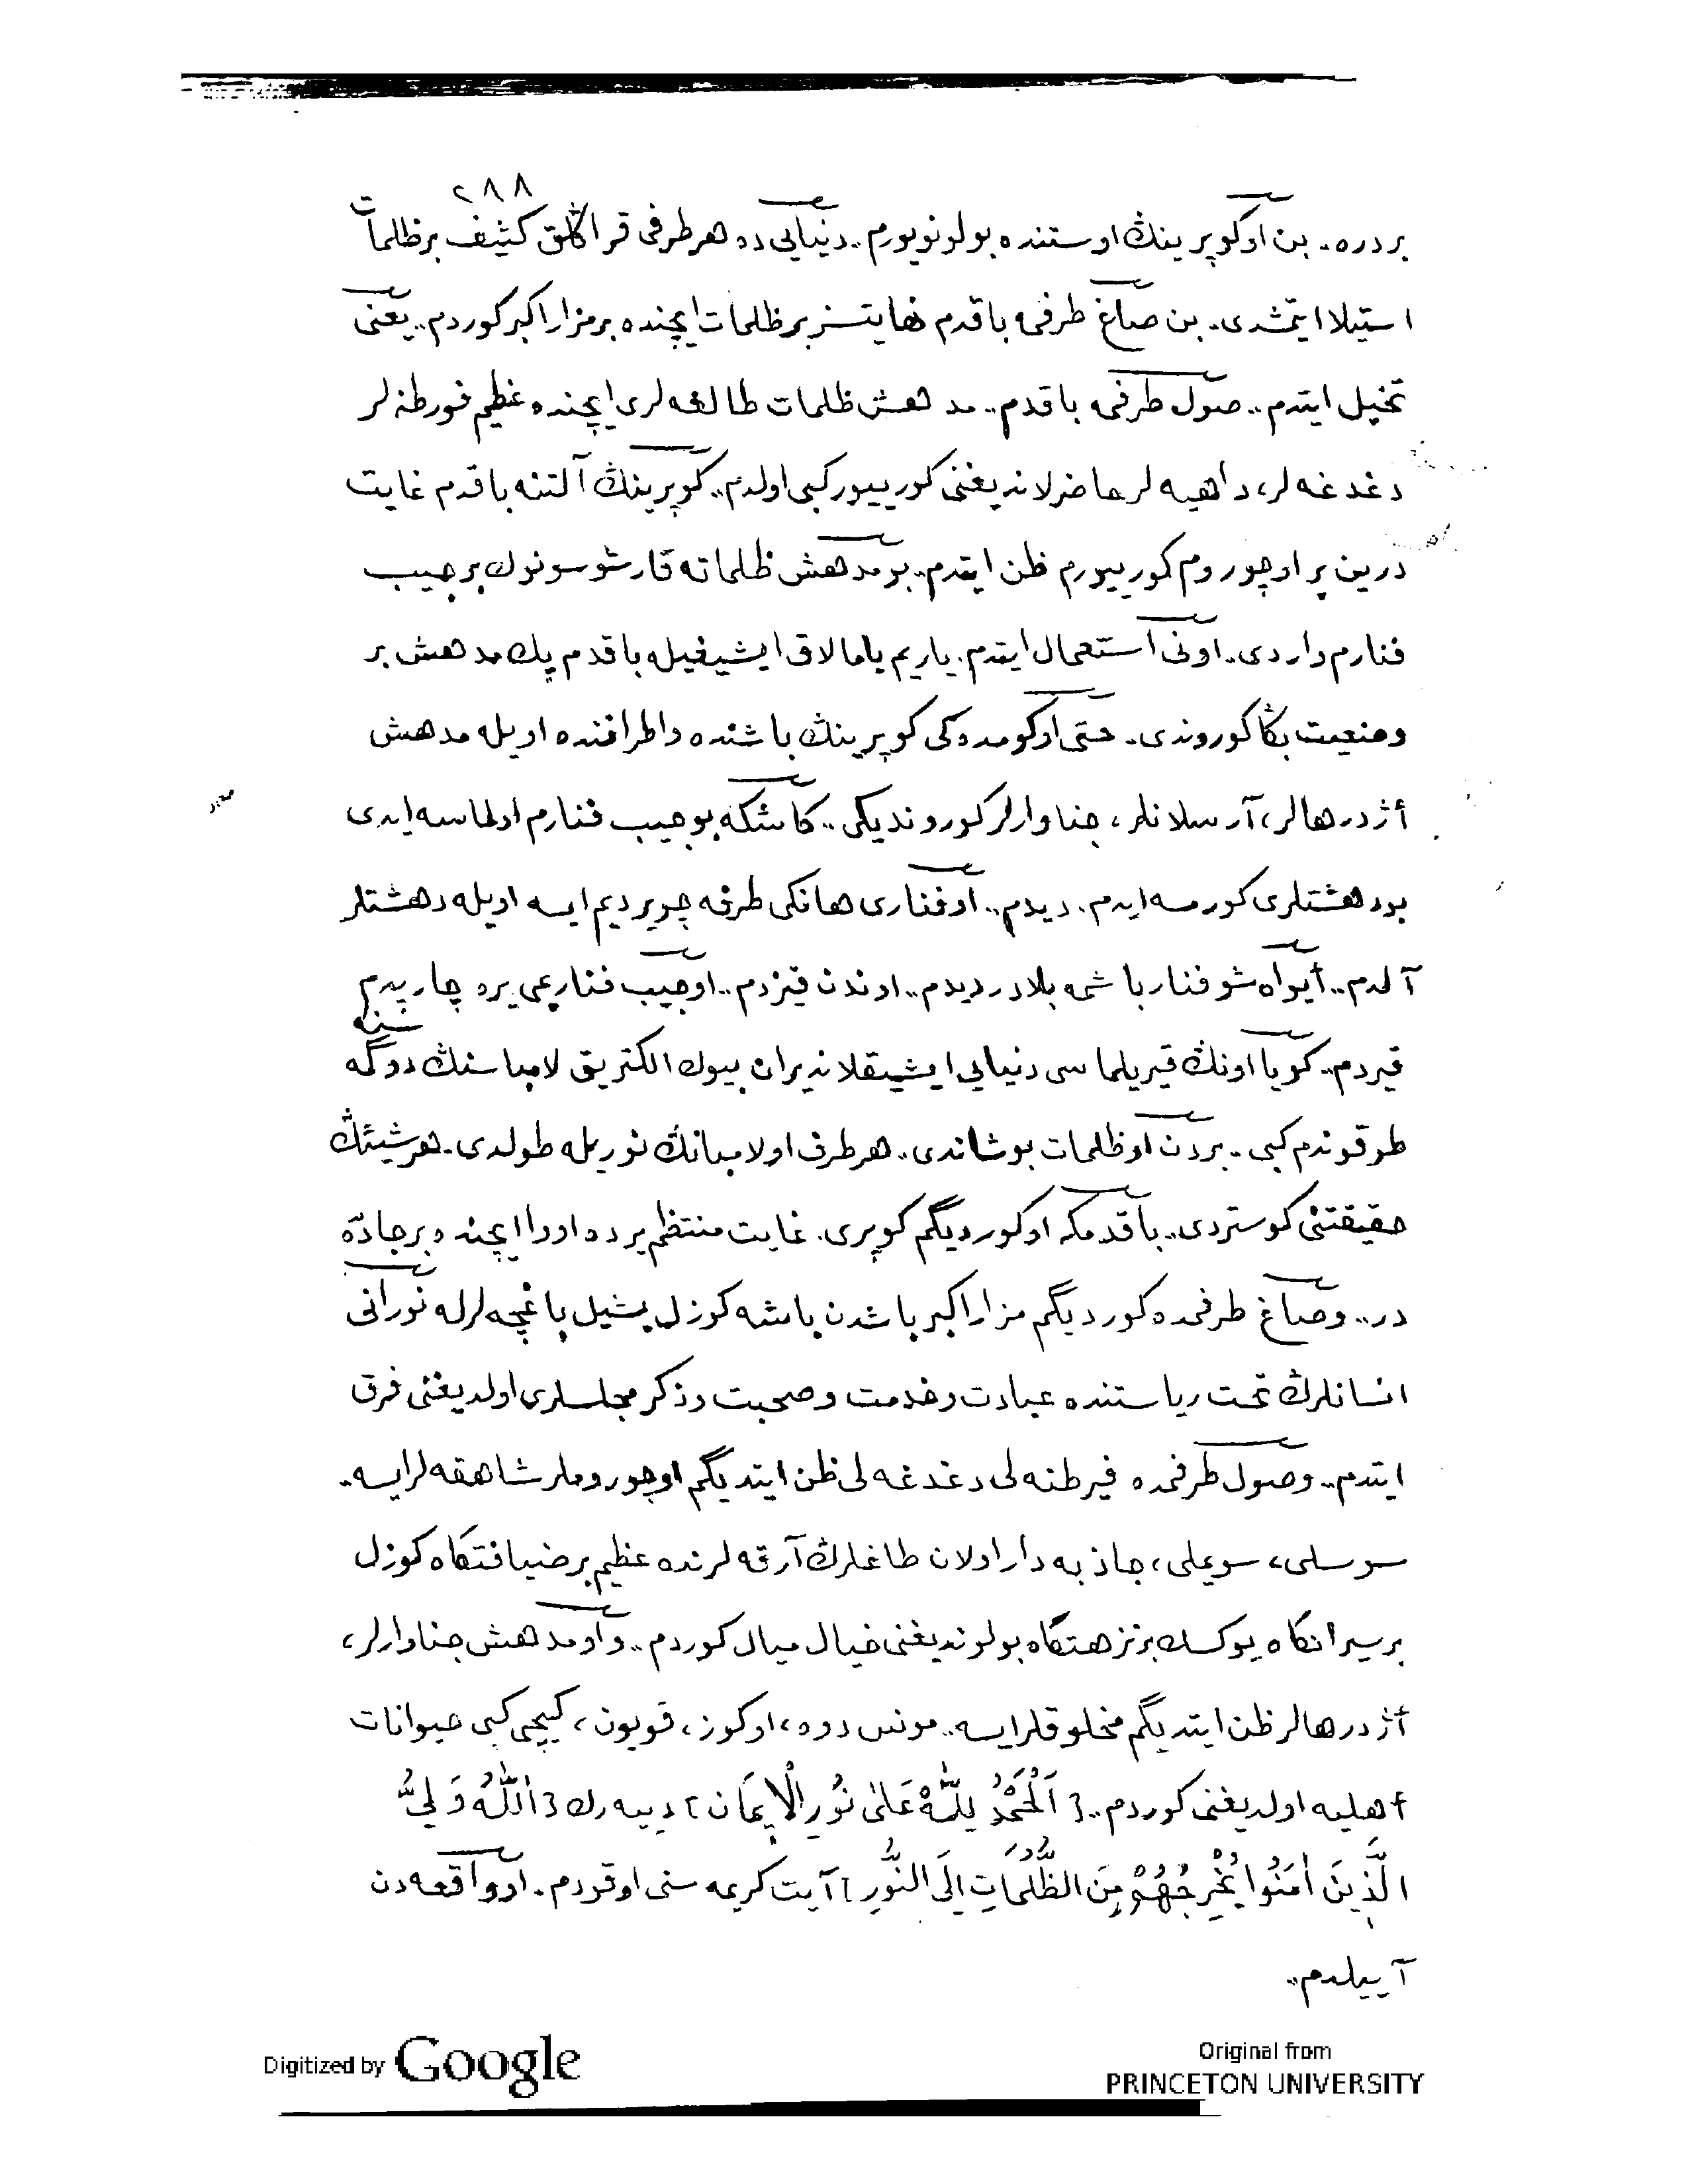 ٢٨٨
بر دره. بن او كوپرينڭ اوستنده بولونويورم.. دنيايى ده هر طرفى قراڭلق كثيف بر ظلمات
استيلا ايتمشدى. بن صاغ طرفمه باقدم نهايتسز بر ظلمات ايچنده بر مزار اكبر كوردم.. يعنى
تخيل ايتدم.. صول طرفمه باقدم.. مدهش ظلمات طالغه لرى ايچنده عظيم فورطنه لر
دغدغه لر، داهيه لر حاضرلانديغنى كورييور كبى اولدم.. كوپرينڭ آلتنه باقدم غايت
درين بر اوچوروم كورييورم ظن ايتدم. بو مدهش ظلماته قارشو سونوك بر جيب
فنارم واردى.. اونى استعمال ايتدم. ياريم يامالاق ايشيغيله باقدم پك مدهش بر
وضعيت بڭا كوروندى. حتى اوڭومده كى كوپرينڭ باشنده و اطرافنده اويله مدهش
أژدرهالر، آرسلانلر، جناوارلر كورونديكى.. كاشكه بو جيب فنارم اولماسه ايدى
بو دهشتلرى كورمسه ايدم. ديدم.. او فنارى هانكى طرفه چويرديم ايسه اويله دهشتلر
آلدم.. أيواه شو فنار باشمه بلادر ديدم.. اوندن قيزدم.. او جيب فنارمى يره چارپدم
قيردم.. كويا اونڭ قيريلماسى دنيايى ايشيقلانديران بيوك الكتريق لامباسنڭ دوگمه سنه
طوقوندم كبى.. بردن او ظلمات بوشاندى.. هر طرف او لامبانڭ نوريله طولدى. هر شيئڭ
حقيقتنى كوستردى.. باقدمكه او كورديگم كوپرى. غايت منتظم يرده اووا ايچنده بر جادّه
در.. و صاغ طرفمده كورديگم مزار اكبر باشدن باشه كوزل يشيل باغچه لرله نورانى
انسانلرڭ تحت رياستنده عبادت و خدمت و صحبت و ذكر مجلسلرى اولديغنى فرق
ايتدم.. و صول طرفمده فيرطنه لى دغدغه لى ظن ايتديگم اوچوروملر شاهقه لر ايسه..
سوسلى، سويملى، جاذبه دار اولان طاغلرڭ آرقه لرنده عظيم بر ضيافتكاه كوزل
بر سيرانكاه يوكسك بر نزهتكاه بولونديغنى خيال ميال كوردم.. و او مدهش جناوارلر،
أژدرهالر ظن ايتديگم مخلوقلر ايسه.. مونس دوه، اوكوز، قويون، كيچى كبى حيوانات
أهليه اولديغنى كوردم.. [اَلْحَمْدُ لِلّٰهِ عَلٰى نُورِ الْاِيمَانِ] دييه رك [اَللّٰهُ وَلِىُّ
الَّذِينَ اٰمَنُوا يُخْرِجُهُمْ مِنَ الظُّلُمَاتِ اِلَى النُّورِ] آيت كريمه سنى اوقودم. او واقعه دن
آييلدم..
Digitized by Google
Original from
PRINCETON UNIVERSITY